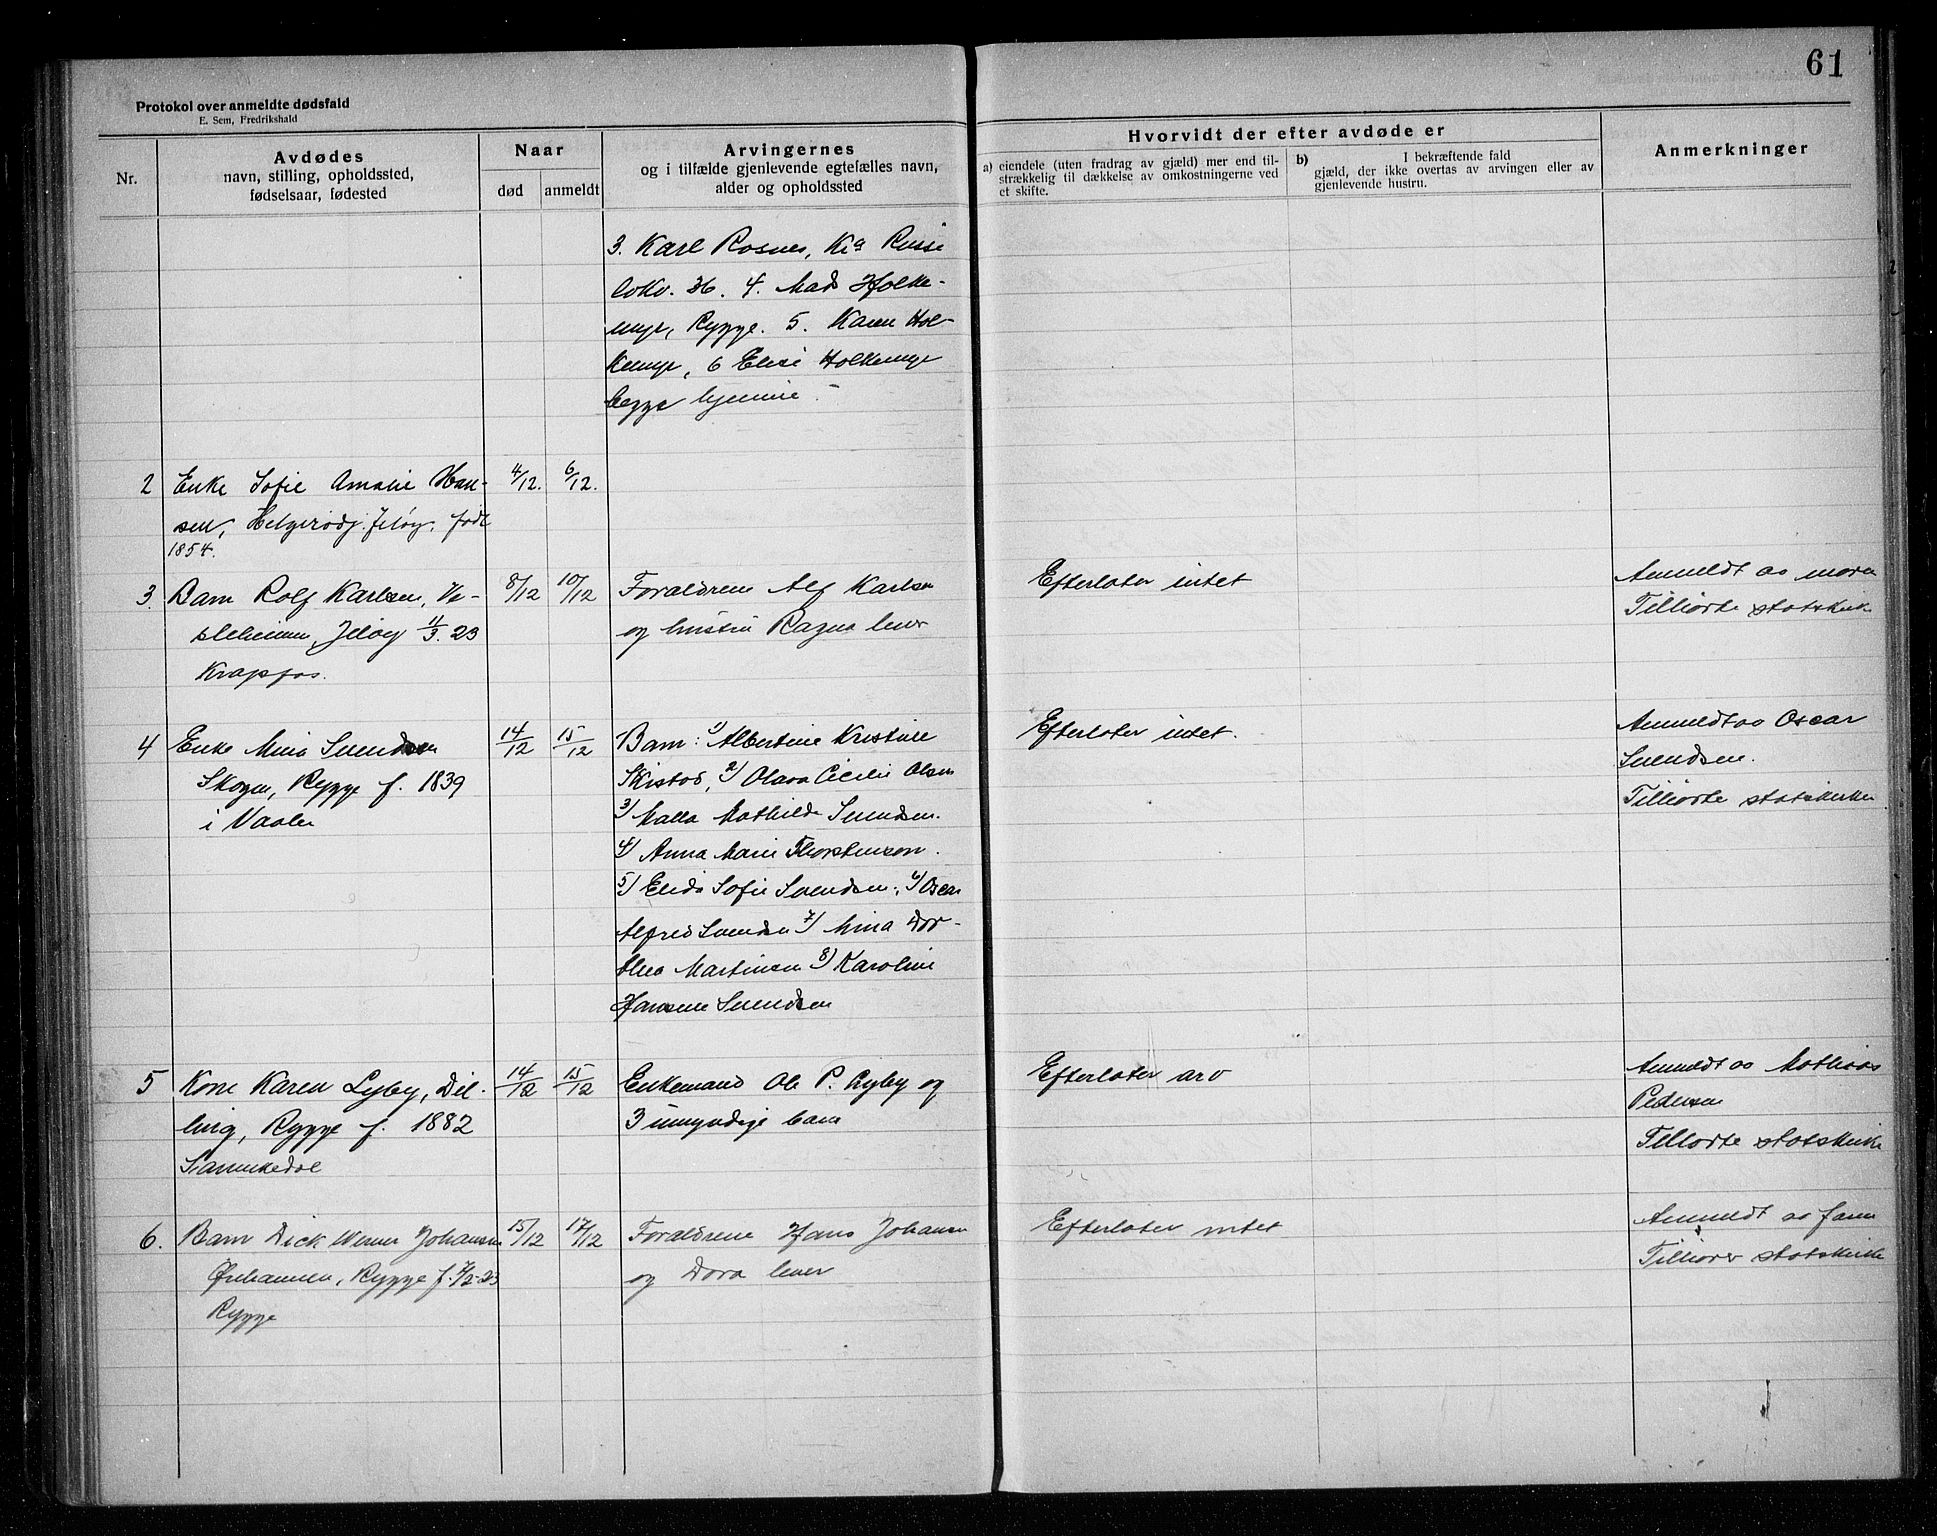 61
Protokol over anmeldte dødsfald
E. Sem, Fredrikshald
Nr.
Avdødes
navn, stilling, opholdssted,
fødselsaar, fødested
Naar
død
anmeldt
Arvingernes
og i tilfælde gjenlevende egtefælles navn,
alder og opholdssted
Hvorvidt der efter avdøde er
a) eiendele (uten fradrag av gjæld) mer end til-
strækkelig til dækkelse av omkostningerne ved
et skifte.
b) I bekræftende fald
gjæld, der ikke overtas av arvingen eller av
gjenlevende hustru.
Anmerkninger
3. Karl Rosnes, Kra
36. 4. Mads Holke-
myr, Rygge. 5. Karen Hol-
kemyr, 6 Elise Holkemyr
begge hjemme.
2 Enke Sofie Amalie Han-
sen, Jeløy. født
1854.
4/12. 6/12.
3. Barn Rolf Karlsen, Ve-
sleheimen, Jeløy 11/3. 23
Krapfos.
8/12 10/12
Forældrene Alf Karlsen
og hustru Ragna lever
Efterlater intet
Anmeldt av moren
Tilhørte statskirk
4 Enke Mina Svendsen
Skogen, Rygge f. 1839
i Vaaler
14/12 15/12
Barn: 1) Albertine Kristine
Skistad, 2) Olava Cecilie Olsen
3) Malla Mathilde Svendsen.
4) Anna Marie Thorstensen.
5) Elida Sofie Svendsen, 6) Oscar
Alfred Svendsen 7) Mina Dor-
thea Martinsen 8) Karoline
Hansine Svendsen
Efterlater intet.
Anmeldt av Oscar
Svendsen.
Tilhørte statskirken
5 Kone Karen Lyby, Dil-
ling, Rygge f. 1882
Sannikedal
14/12 15/12
Enkemand Ole P. Lyby og
3 umyndige barn
Efterlater arv
Anmeldt av Mathias
Pedersen
Tilhørte statskirke
6. Barn Dick Werner Johansen
Rygge f. 7/2-23
Rygge
15/12 17/12
Forældrene Hans Johansen
og Dora lever
Efterlater intet
Anmeldt av faren
Tilhører statskirke